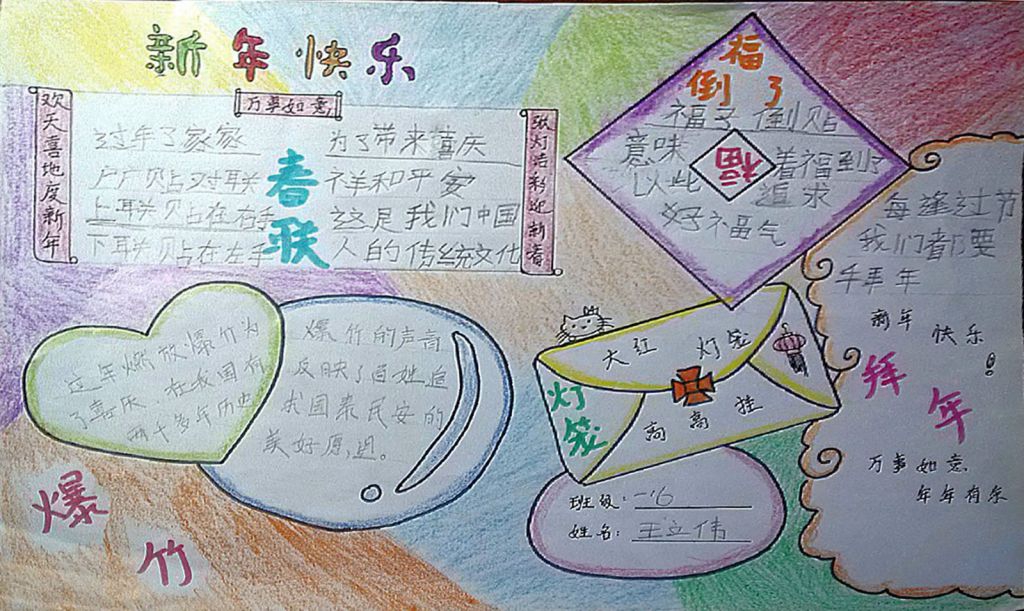 新年快乐
万事如意
欢天喜地度新年
张灯结彩迎新春
春联
过年了家家
户户贴对联
上联贴在右手
下联贴在左手
为了带来喜庆
祥和平安
这是我们中国
人的传统文化
福
倒了
福字倒贴
意味 着福到了
福
以此 追求
好福气
每逢过节
我们都要
拜年
新年
快乐!
拜年
万事如意
年年有余
过年燃放爆竹为
了喜庆 在我国有
两千多年历史
爆竹的声音
反映了百姓追
求国泰民安的
美好愿望。
爆竹
大红 灯笼
高高挂
灯笼
班级:一6
姓名:王立伟